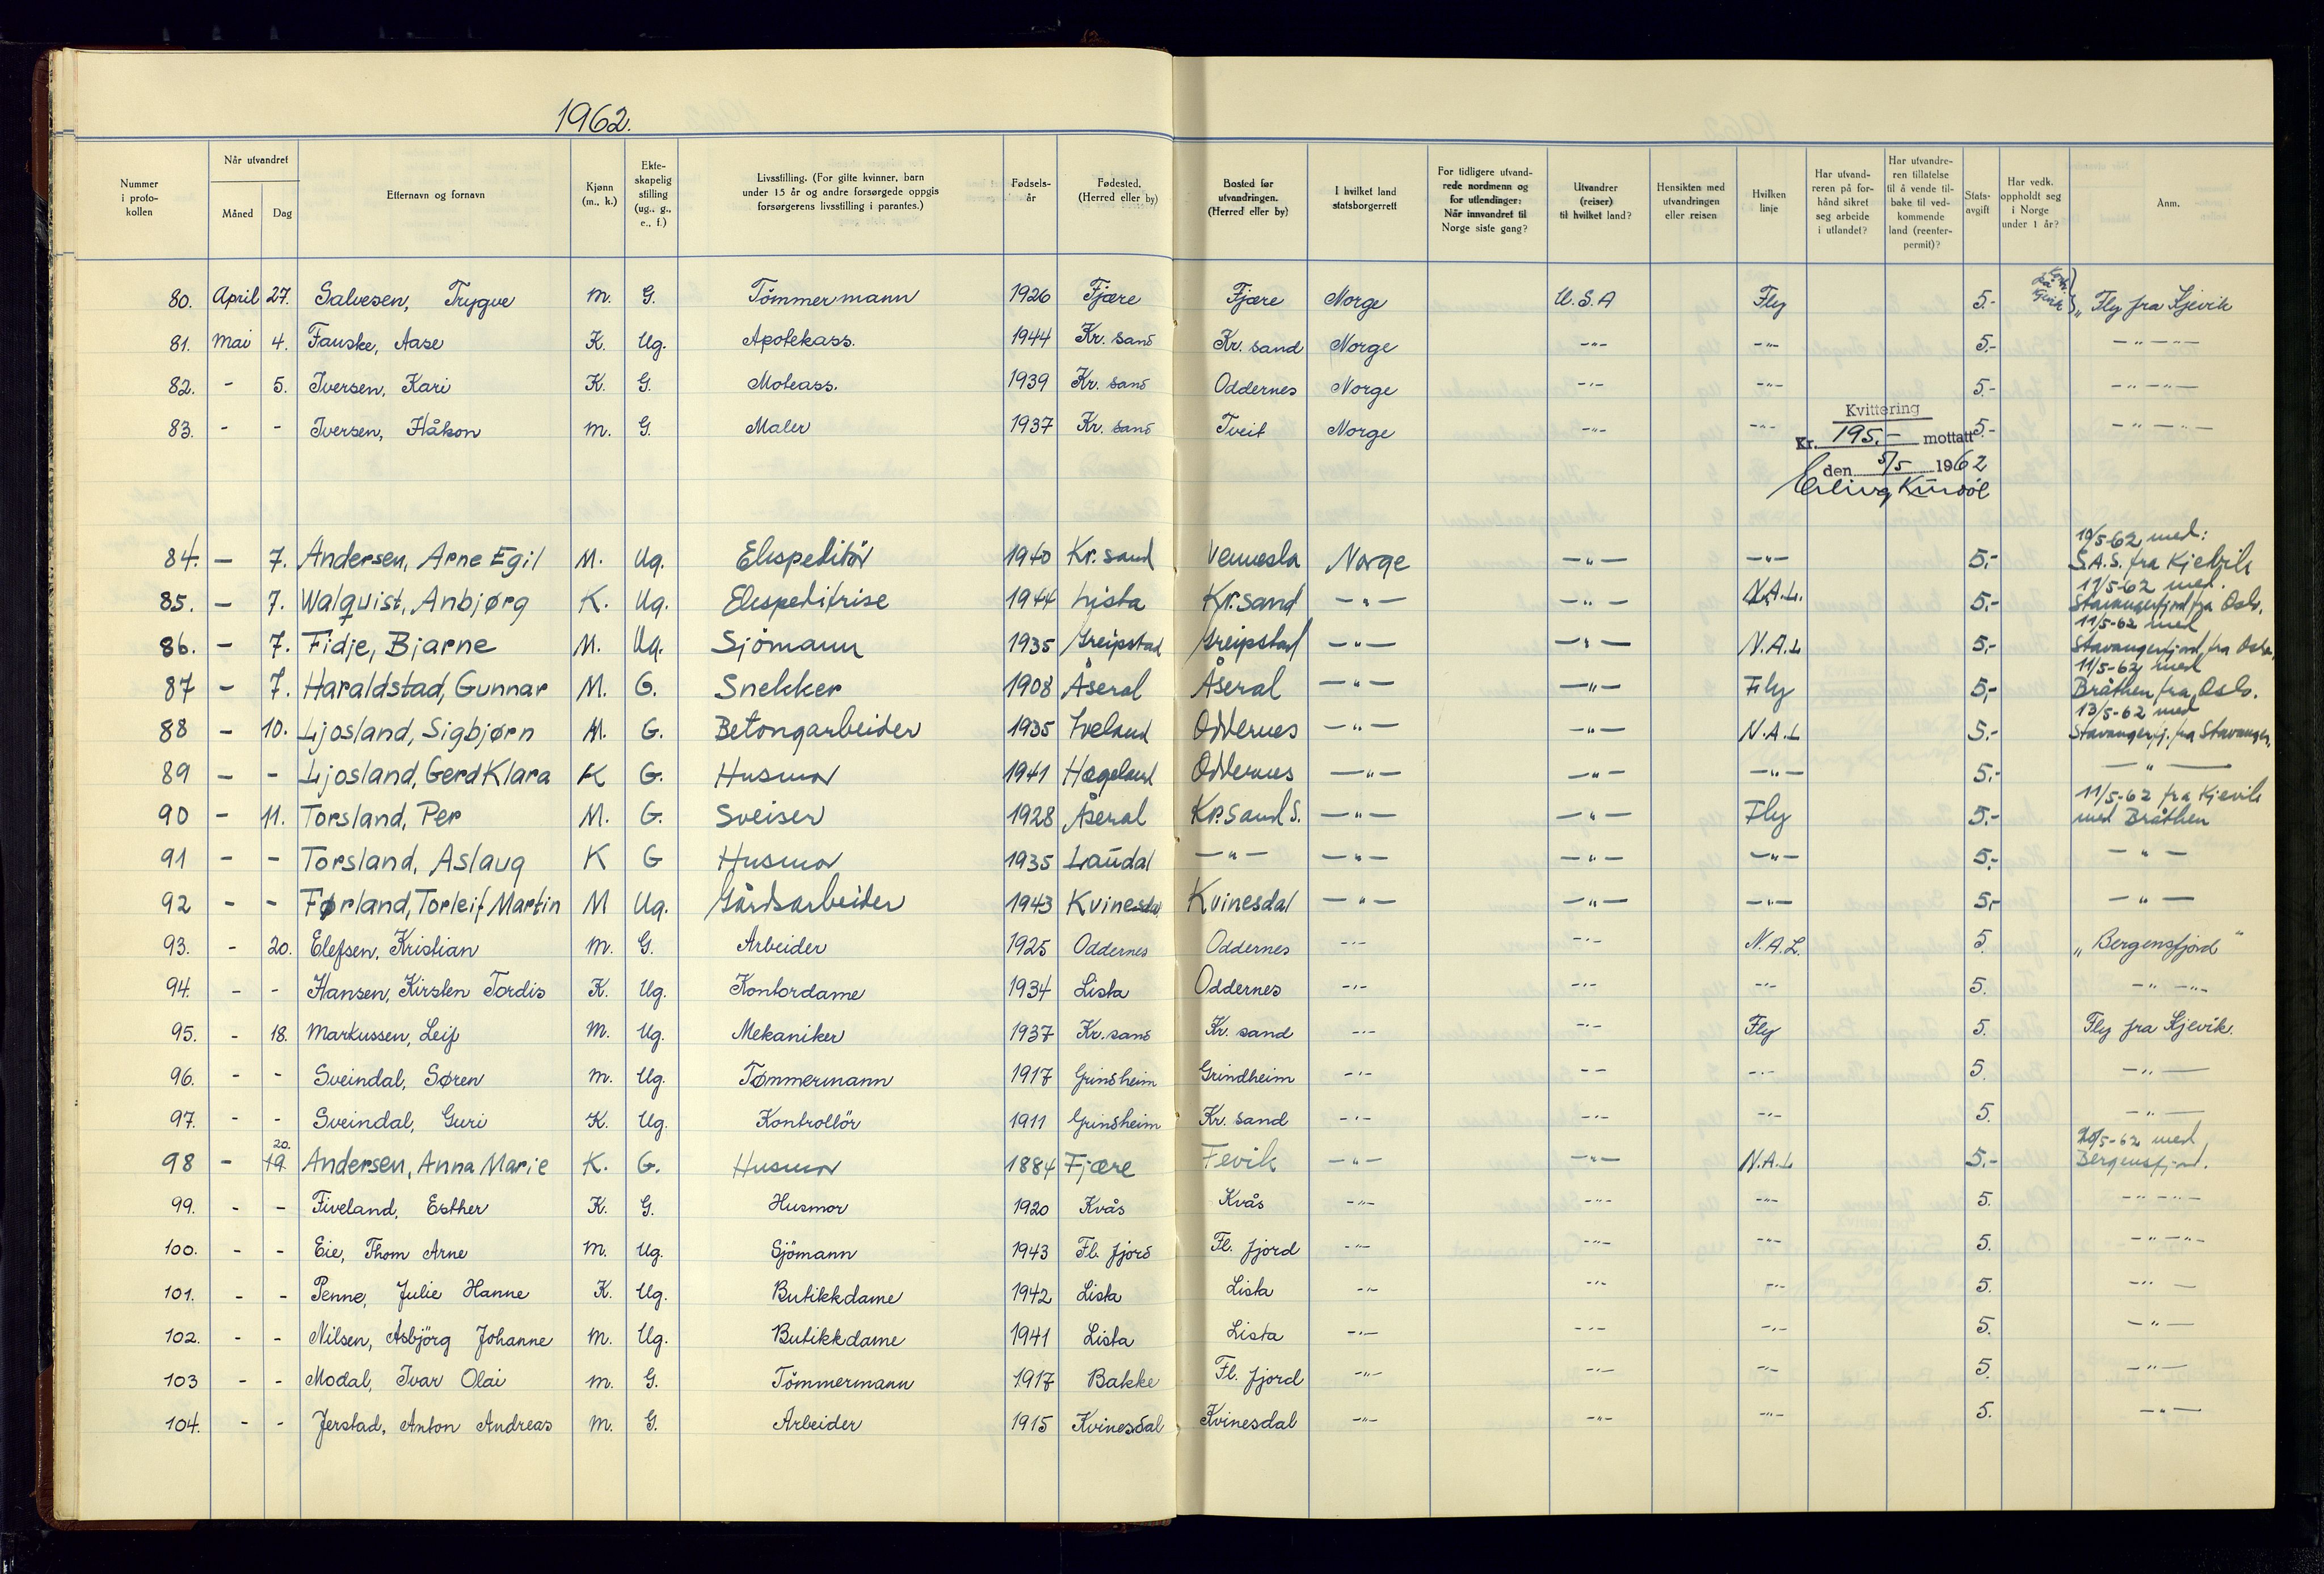 1962.
Nummer i protokollen | Når utvandret: Måned | Dag | Etternavn og fornavn | Kjønn (m., k.) | Ekteskapelig stilling (ug., g., e., f.) | Livsstilling. (For gifte kvinner, barn under 15 år og andre forsørgede oppgis forsørgerens livsstilling i parantes.) | Fødselsår | Fødested. (Herred eller by) | Bosted før utvandringen. (Herred eller by) | I hvilket land statsborgerrett | For tidligere utvandrede nordmenn og for utlendinger: Når innvandret til Norge siste gang? | Utvandrer (reiser) til hvilket land? | Hensikten med utvandringen eller reisen | Hvilken linje | Har utvandreren på forhånd sikret seg arbeide i utlandet? | Har utvandreren tillatelse til å vende tilbake til vedkommende land (reenterpermit)? | Statsavgift | Har vedk. oppholdt seg i Norge under 1 år? | Anm.
80. April 27. Salvesen, Trygve m. G. Tömmermann 1926 Fjære Fjære Norge U.S.A Fly 5.- „ Fly fra Kjevik
81. Mai 4. Fauske, Aase K. Ug. Apotekass. 1944 Kr. sand Kr. sand Norge -"- -"- 5.- -"- -"-
82. - 5. Iversen, Kari K. G. Moteass. 1939 Kr. sand Oddernes Norge -"- -"- 5.- -"- -"-
83. - - Iversen, Håkon m. G. Maler 1937 Kr. sand Tveit Norge -"- -"- 5.- -"- -"-
Kvittering
Kr. 195.- mottatt
den 5/5 1962
Erling
84. - 7. Andersen, Arne Egil M. Ug. Ekspeditör 1940 Kr. sand Vennesla Norge -"- -"- 5,- 10/5-62 med: S.A.S. fra Kjevik
85. - 7. Walquist, Anbjørg K. Ug. Ekspeditrise 1944 Lista Kr.sand -"- -"- N.A.L. 5,- 11/5-62 med. Stavangerfjord fra Oslo.
86. - 7. Fidje, Bjarne M. Ug. Sjömann 1935 Greipstad Greipstad -"- -"- N.A.L 5,- 11/5-62 med Stavangerfjord fra Oslo.
87 - 7. Haraldstad, Gunnar M. G. Snekker 1908 Åseral Åseral -"- -"- Fly 5,- 11/5-62 med Bråthen fra Oslo.
88 - 10. Ljosland, Sigbjørn M. G. Betongarbeider 1935 Iveland Oddernes -"- -"- N.A.L 5.- 13/5-62 med Stavangerfj. fra Stavanger.
89 - - Ljosland, Gerd Klara K G. Husmor 1941 Hægeland Oddernes -"- -"- -"- 5.- -"-
90 - 11. Torsland, Per M. G. Sveiser 1928 Åseral Kr.Sand S. -"- -"- Fly 5.- 11/5-62 fra Kjevik med Bråthen
91 - - Torsland, Aslaug K G Husmor 1935 Laudal -"- -"- -"- -"- 5.- -"-
92 - - Førland, Torleif Martin M Ug. Gårdsarbeider 1943 Kvinesdal Kvinesdal -"- -"- -"- 5,- -"-
93. - 20. Elefsen, Kristian m. G. Arbeider 1925 Oddernes Oddernes -"- -"- N.A.L. 5. „Bergensfjord"
94. - - Hansen, Kirsten Tordis K. Ug. Kontordame 1934 Lista Oddernes -"- -"- -"- 5. -"- -"-
95. - 18. Markussen, Leif m. Ug. Mekaniker 1937 Kr. sand Kr. sand -"- -"- Fly 5. Fly fra Kjevik.
96. - - Sveindal, Søren m. Ug. Tømmermann 1917 Grindheim Grindheim -"- -- -"- 5. -"-
97. - - Sveindal, Guri K. Ug. Kontrollör 1911 Grindheim Kr. sand -"- -"- -"- 5. -"-
98 - 20. 19. Andersen, Anna Marie K. G. Husmor 1884 Fjære Fevik -"- -"- N.A.L 5.- 20/5-62 med Bergensfjord.
99. - - Fiveland, Esther K. G. Husmor 1920 Kvås Kvås -"- -"- -"- 5. -"- -"-
100. - - Eie, Thom Arne m. Ug. Sjömann 1943 Fl. fjord Fl. fjord -"- -"- -"- 5. -"- -"-
101. - - Penne, Julie Hanne K. Ug. Butikkdame 1942 Lista Lista -"- -"- -"- 5. -"-
102. - - Nilsen, Asbjörg Johanne m. Ug. Butikkdame 1941 Lista Lista -"- -"- -"- 5. -"-
103 - - Modal, Ivar Olai m. G. Tömmermann 1917 Bakke Fl. fjord -"- -"- -"- 5. -"-
104. - - Jerstad, Anton Andreas m. G. Arbeider 1915 Kvinesdal Kvinesdal -"- -"- -"- 5. -"-